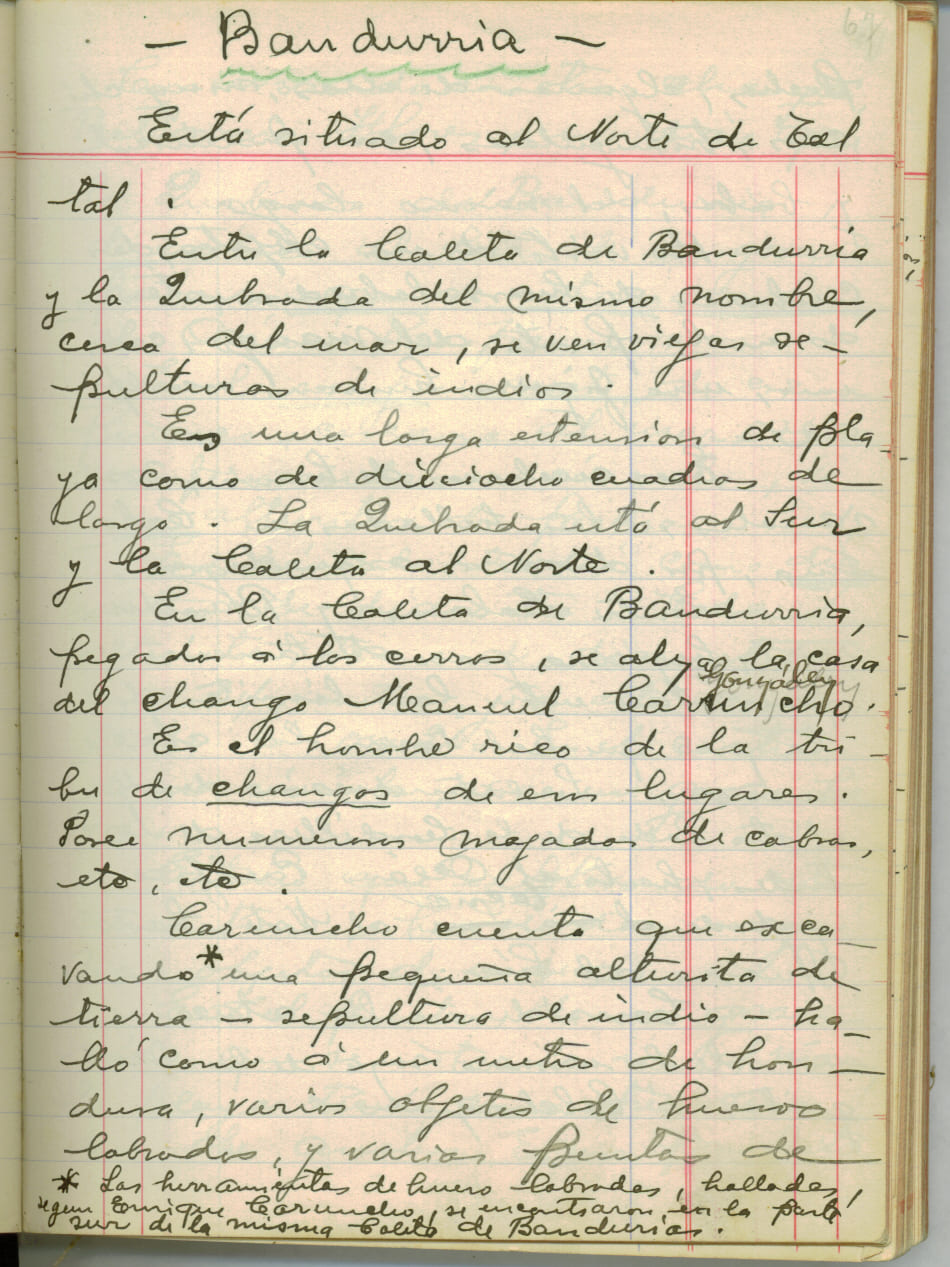 — Bandurria —
Está situado al Norte de Tal
tal.
Entre la Caleta de Bandurria
y la Quebrada del mismo nombre,
cerca del mar, se ven viejas se-
pulturas de indios.
Es una larga estension de pla-
ya como de dieciocho cuadras de
largo. La Quebrada está al Sur
y la Caleta al Norte.
En la Caleta de Bandurria,
pegados á los cerros, se alza la casa
González
del chango Manuel Caruncho.
Es el hombre rico de la tri-
bu de changos de esos lugares.
Posee numerosos majadas de cabras,
etc, etc.
Caruncho cuenta que exca-
vando * una pequeña alturita de
tierra — sepultura de indio — ha-
lló como á un metro de hon-
dura, varios objetos de hueso
labrados, y varias puntas de
* Las herramientas de hueso labradas, halladas,
segun Enrique Caruncho, se encontraron en la parte
sur de la misma Caleta de Bandurias.